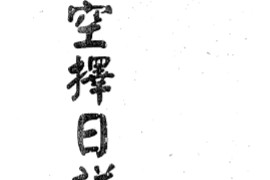 空擇日